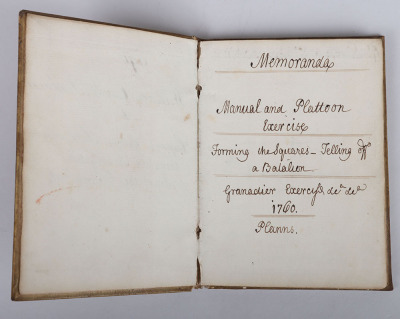 Memoranda
Manual and Plattoon
Exercise
Forming the Squares - Telling off
a Batalion
Granadier Exercys, &c.a &c.a
1760.
Planns.